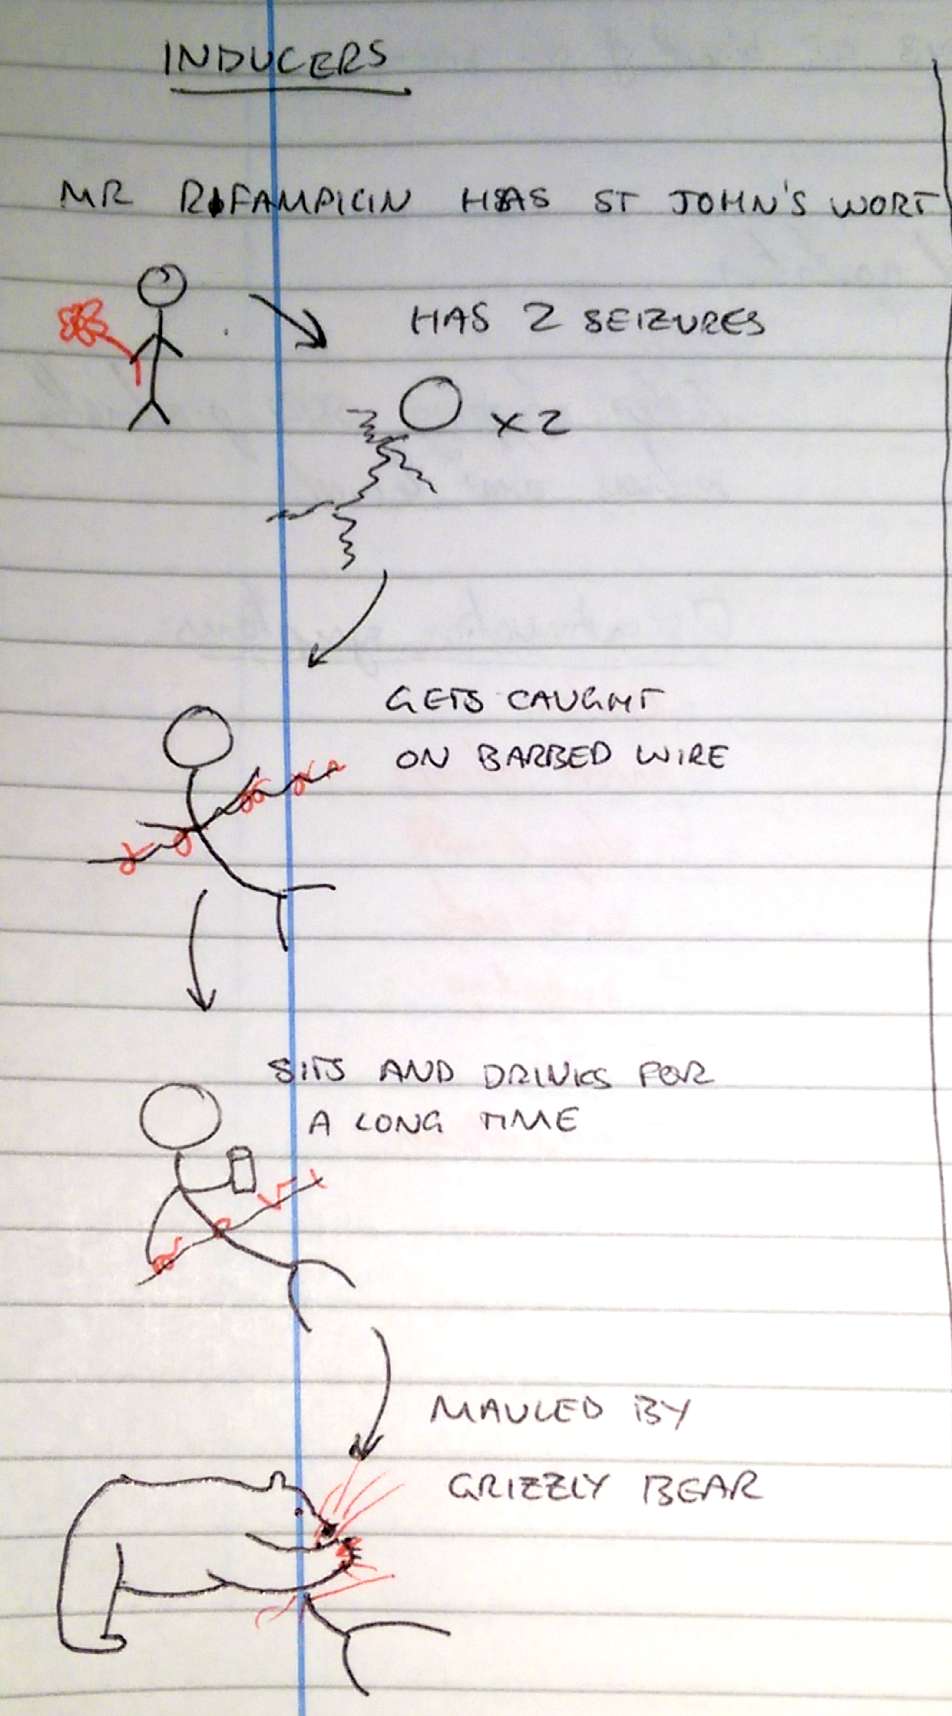 INDUCERS
MR RIFAMPICIN HAS ST JOHN'S WORT
HAS 2 SEIZURES
X2
GETS CAUGHT
ON BARBED WIRE
SITS AND DRINKS FOR
A LONG TIME
MAULED BY
GRIZZLY BEAR